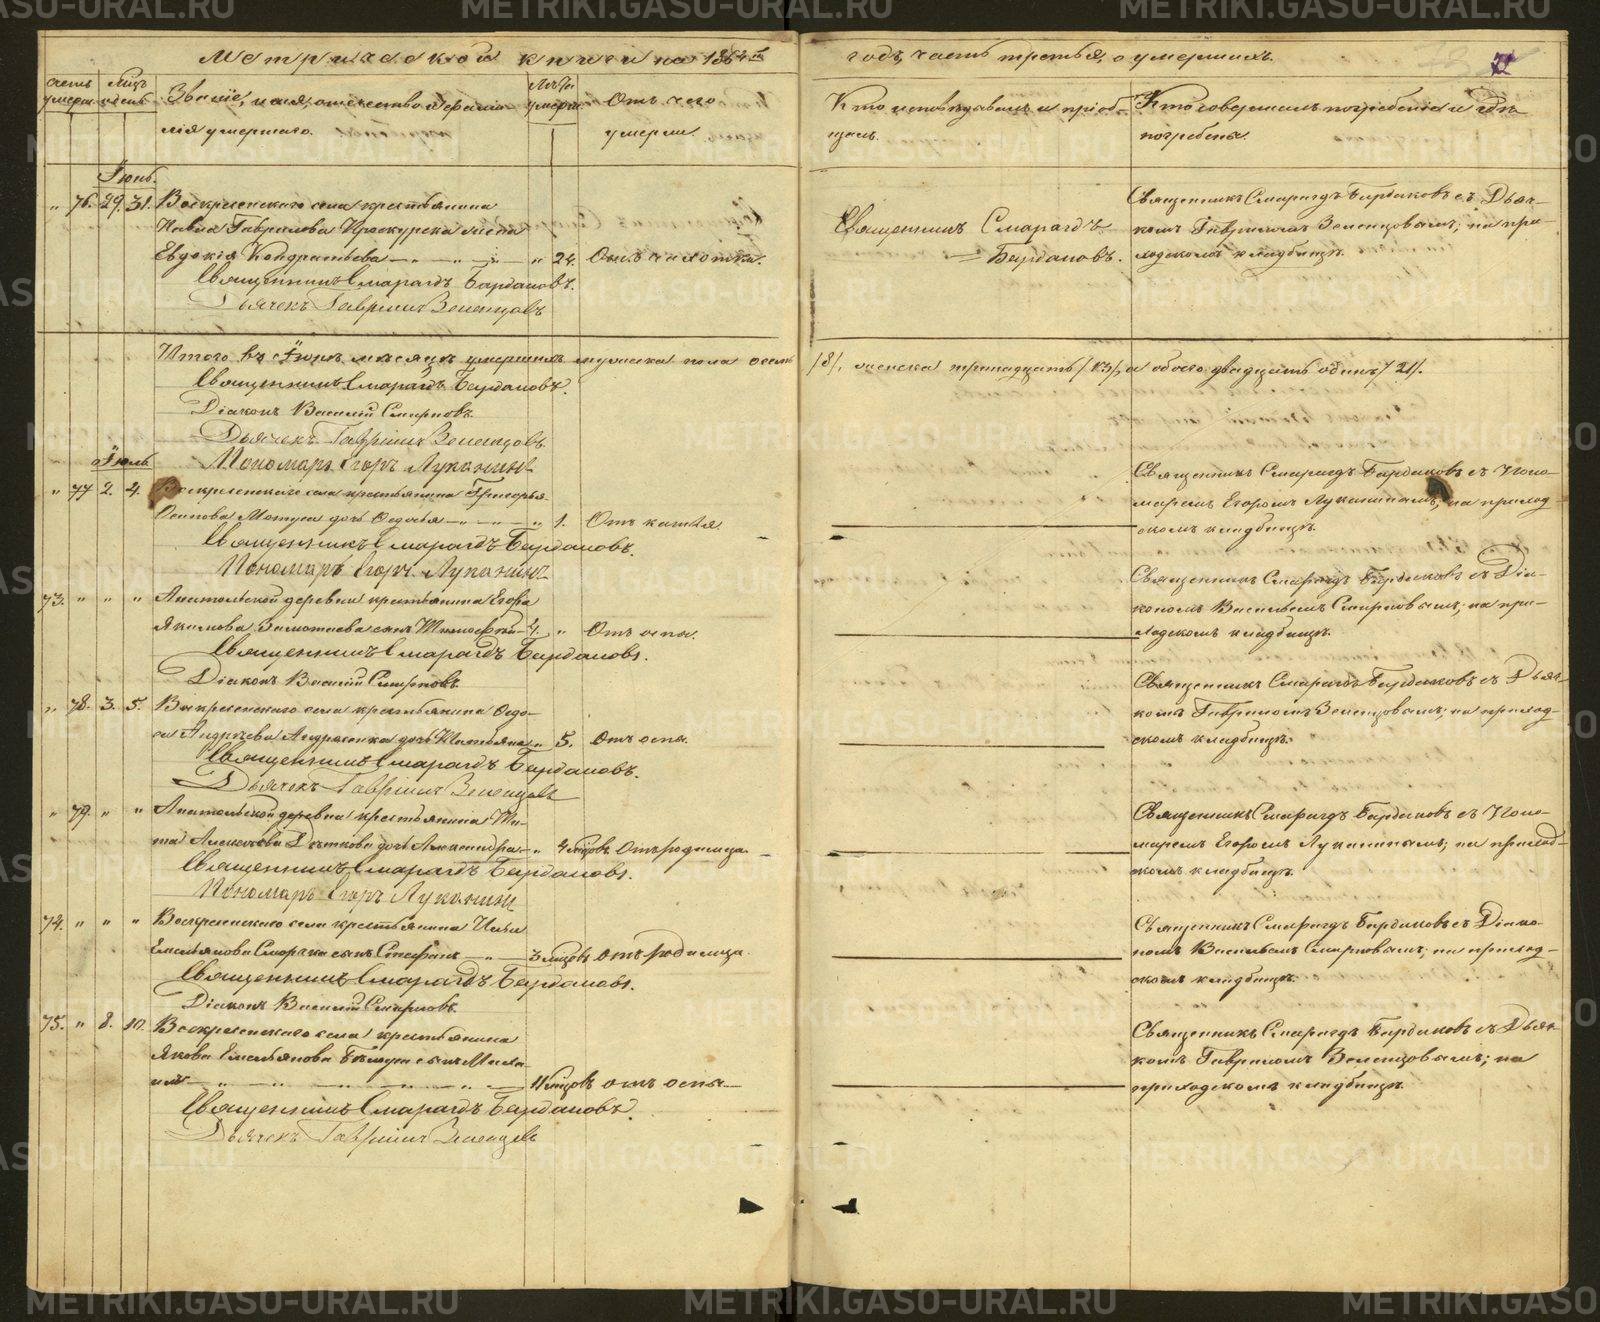 Метрической книги на 1864й
годъ, часть третья, о умершихъ.
71
Счетъ умерш.
Мѣц. и день
Званіе, имя, отчество и фами-
лія умершаго.
Лѣта умерш.
Отъ чего
умерли.
Кто исповѣдывалъ и пріоб-
щалъ.
Кто совершалъ погребеніе и гдѣ
погребены.
Іюнь.
„ 76. 29. 31. Воскресенскаго села крестьянина
Павла Гаврилова
Евдокія Кондратьева „ 24. Отъ чахотки.
Священникъ Смарагдъ Бардаковъ.
Дьячекъ Гавріилъ Зеленцовъ
Священникъ Смарагдъ
Бардаковъ.
Священникъ Смарагдъ Бардаковъ съ Дьяч-
комъ Гавріиломъ Зеленцовымъ; на при-
ходскомъ кладбищѣ.
Итого въ Іюнѣ мѣсяцѣ умершихъ мужеска пола осемь
/8/, женска тринадцать /13/, а обоего двадцать одинъ /21/.
Священникъ Смарагдъ Бардаковъ.
Діаконъ Василій Смирновъ.
Дьячекъ Гавріилъ Зеленцовъ.
Пономарь Егоръ Луканинъ
Іюль
„ 77 2. 4. Воскресенскаго села крестьянина Григорья
Осипова дочь Ѳедосья „ 1. Отъ кашля
Священникъ Смарагдъ Бардаковъ.
Пономарь Егоръ Луканинъ
Священникъ Смарагдъ Бардаковъ съ Поно-
маремъ Егоромъ Луканинымъ, на приход
скомъ кладбищѣ.
73. „ „ „ Анатольской деревни крестьянина Егора
Якимова сынъ Тимофей 4. „ Отъ оспы.
Священникъ Смарагдъ Бардаковъ.
Діаконъ Василій Смирновъ.
Священникъ Смарагдъ Бардаковъ съ Діа-
кономъ Васильемъ Смирновымъ; на при-
ходскомъ кладбищѣ.
„ 78. 3. 5. Воскресенскаго села крестьянина Ѳедо-
са Андрѣева дочь Татьяна „ 5. Отъ оспы.
Священникъ Смарагдъ Бардаковъ.
Дьячекъ Гавріилъ Зеленцовъ
Священникъ Смарагдъ Бардаковъ съ Дьяч-
комъ Гавріиломъ Зеленцовымъ; на приход-
скомъ кладбищѣ.
„ 79. „ „ Анатольской деревни крестьянина Ни-
ты Алексѣева дочь Александра „ 4 мѣцовъ. Отъ родимца.
Священникъ Смарагдъ Бардаковъ.
Пономарь Егоръ Луканинъ
Священникъ Смарагдъ Бардаковъ съ Поно-
маремъ Егоромъ Луканинымъ; на приход-
скомъ кладбищѣ.
74. „ „ „ Воскресенскаго села крестьянина Ильи
Емельянова сынъ Стефанъ „ 3 мѣцовъ Отъ родимца.
Священникъ Смарагдъ Бардаковъ.
Діаконъ Василій Смирновъ.
Священникъ Смарагдъ Бардаковъ съ Діако-
номъ Васильемъ Смирновымъ, на приход-
скомъ кладбищѣ.
75. „ 8. 10. Воскресенскаго села крестьянина
Якова Емельянова сынъ Миха-
илъ 11 мѣцовъ отъ оспы
Священникъ Смарагдъ Бардаковъ.
Дьячекъ Гавріилъ Зеленцовъ
Священникъ Смарагдъ Бардаковъ съ Дьяч
комъ Гавріиломъ Зеленцовымъ; на
приходскомъ кладбищѣ.
METRIKI.GASO-URAL.RU